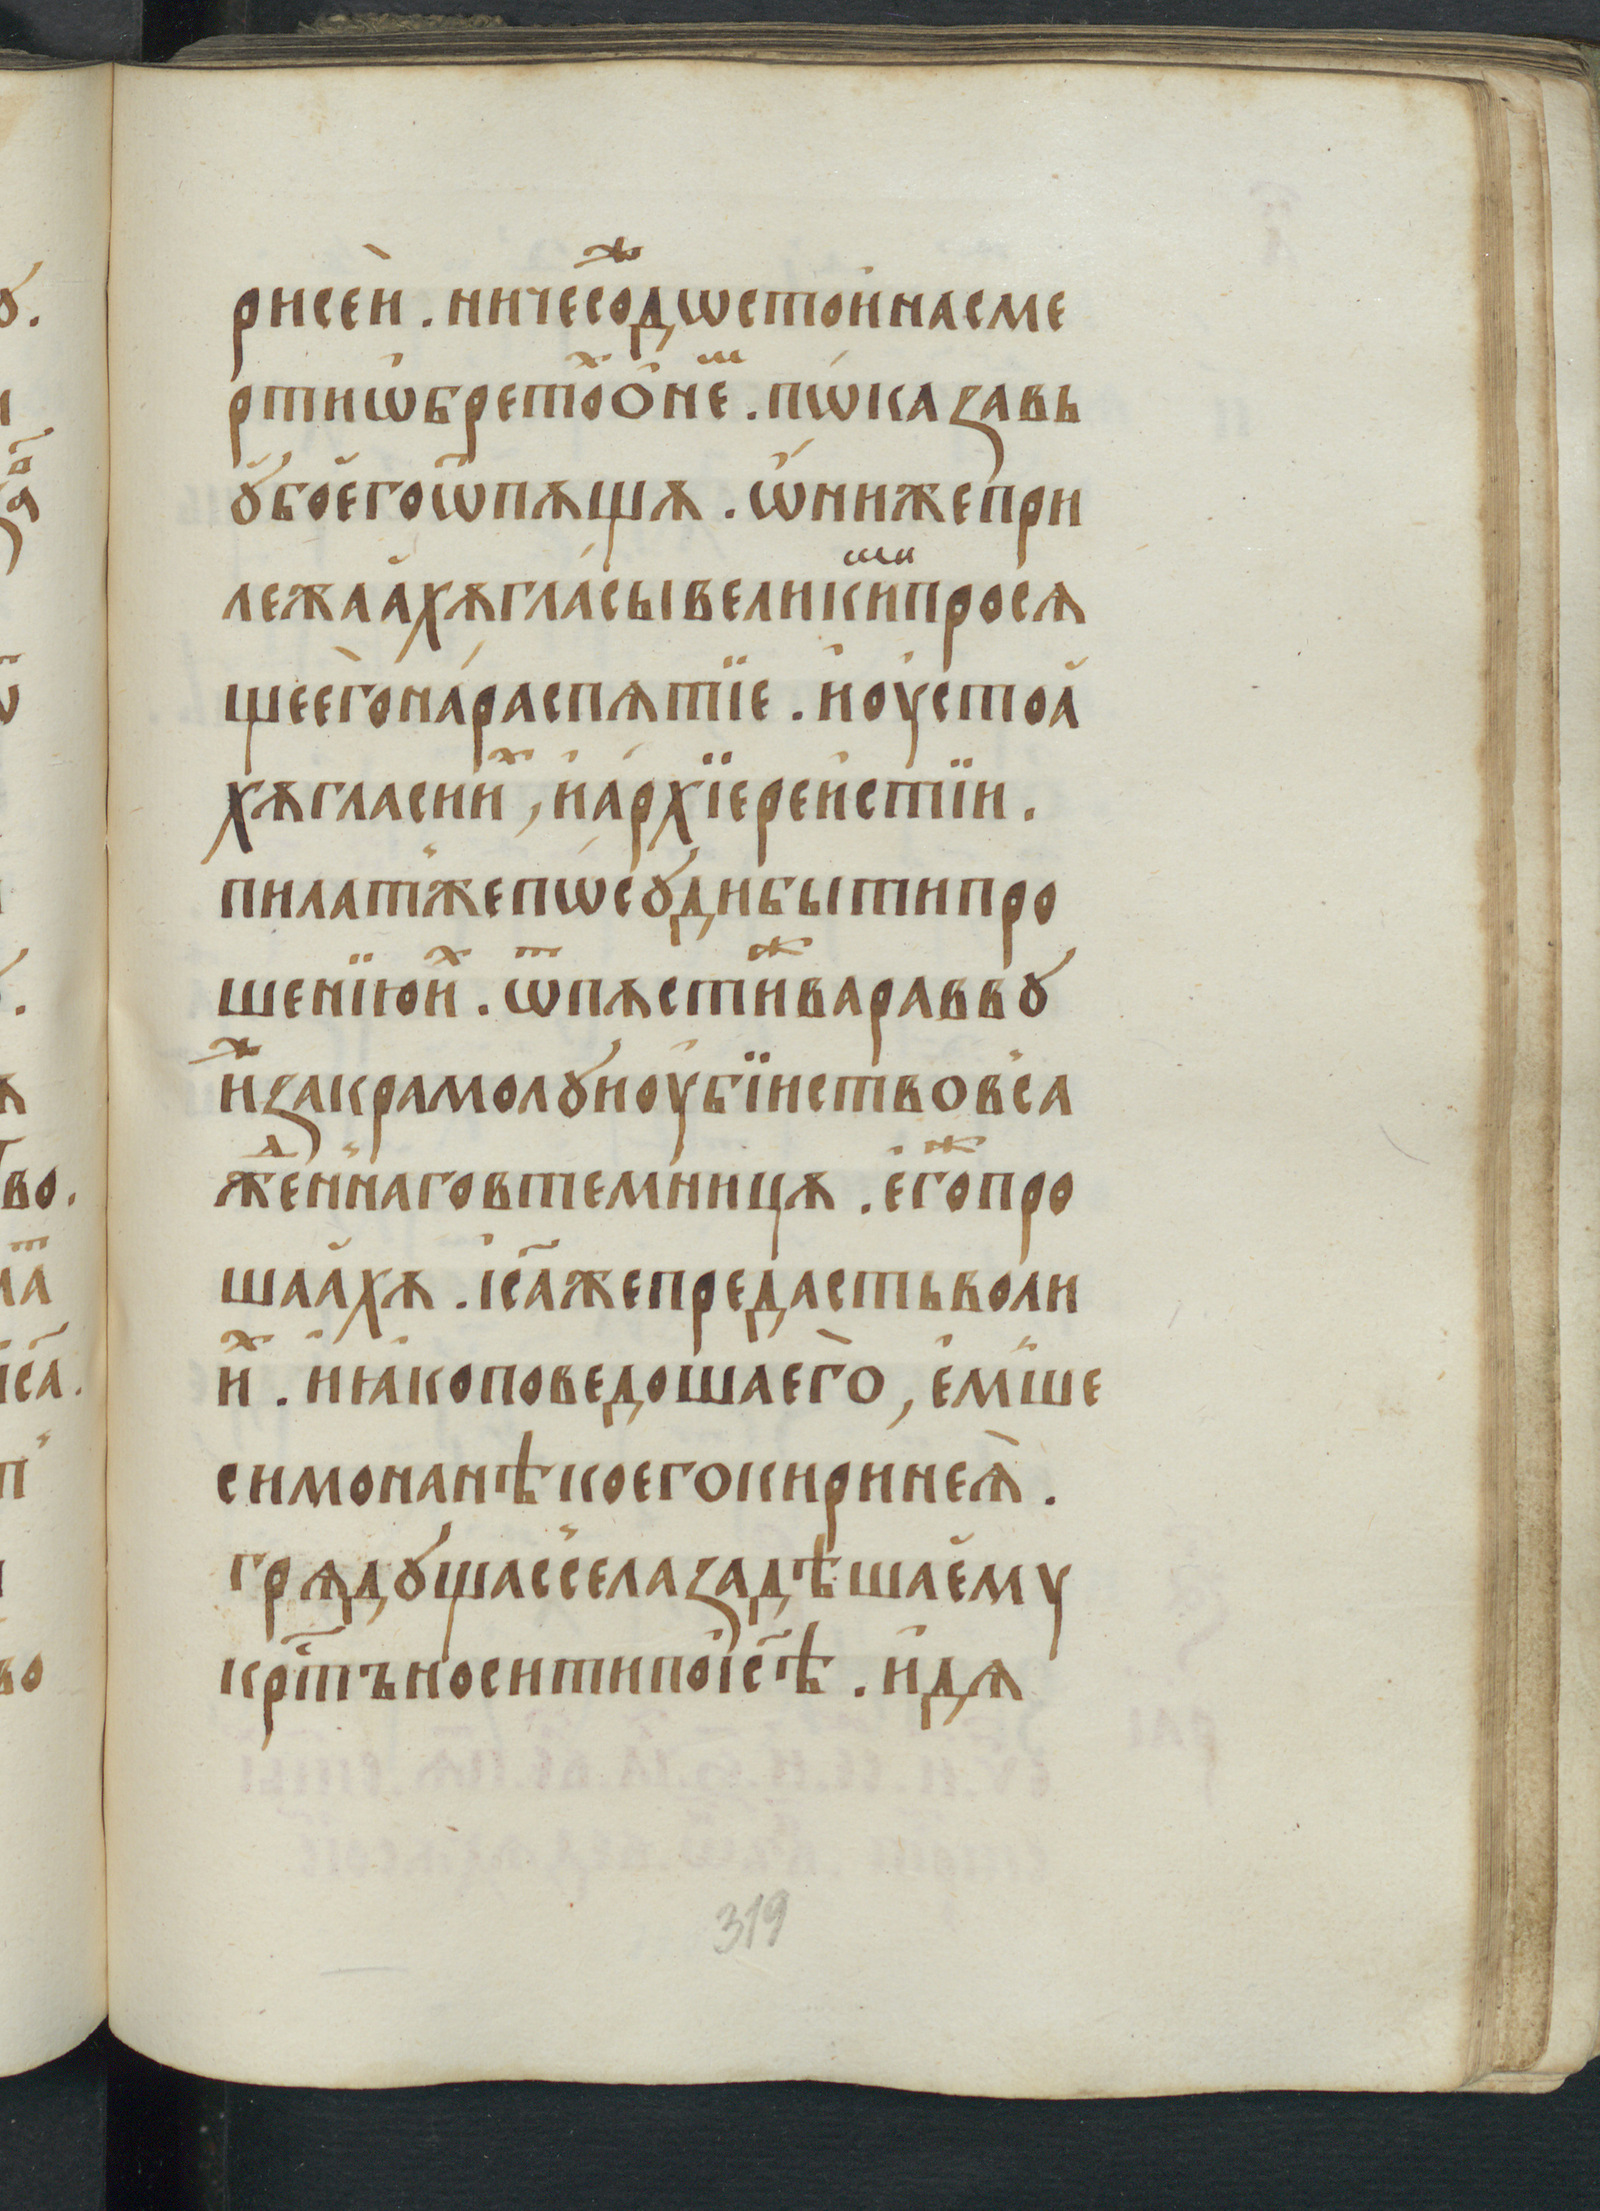 рисе́и . ничесо́ⷤдѡстоинасме
ртиѡ҆брето́ⷯѻ҆не́ⷨ . пѡ҆каꙁавь
ꙋ҆боегоѿпѫщѫ . ѡ҆нижепри
лежаа҆хѫгла́сывеликиⷨипросѧ
щеегò на́распѧтїе . и҆оу҆стоа҆
хѫгласииⷯ, и҆а́рхїереистїи .
пилатжепѡсꙋдибытипро
шенїюиⷯ . ѿпѫстиⷤвараввꙋ
иⷤꙁакрамолꙋиоу҆бїиствовса
жеⷣннаговтемницѫ . е҆гоⷤпро
шаа҆хѫ . і҆с҃ажепредастьволи
иⷯ . и҆ꙗ҆коповедошаегò, е҆мше
симонанѣкоегокиринеѧ̀ .
грѧдꙋщассела ꙁадѣшаему
крⷭ҇тъноситипоі҆с҃ѣ . и҆дѧ
319